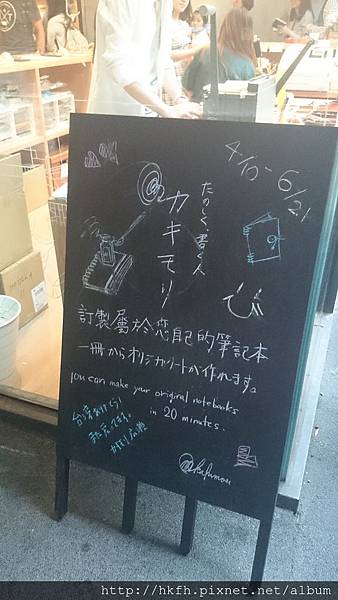 4/10-6/21
たのしく、書く人
カキモリ
訂製屬於您自己的筆記本
一冊からオリジナルノートが作れます。
you can make your original notebooks
in 20 minutes.
http://hkfh.pixnet.net/album